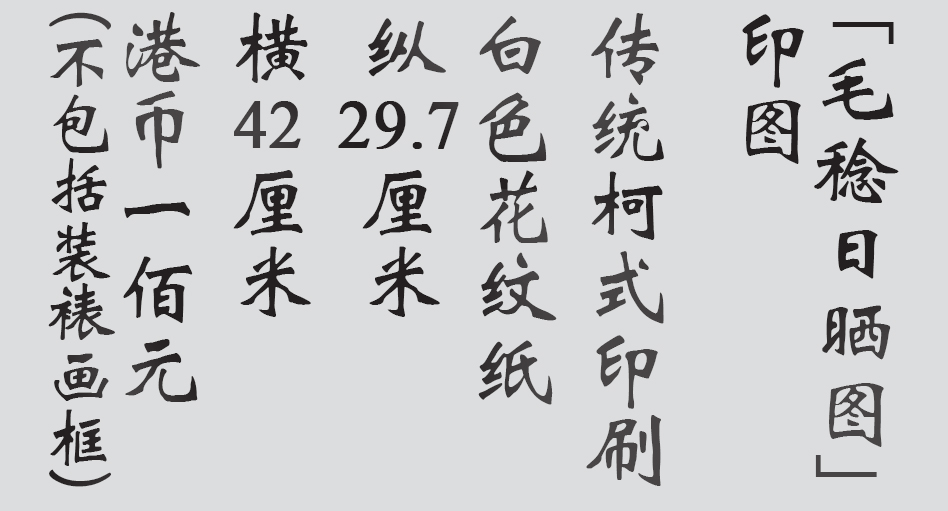 「毛稔日晒图」
印图
传统柯式印刷
白色花纹纸
纵29.7厘米
横42厘米
港币一佰元
（不包括装裱画框）